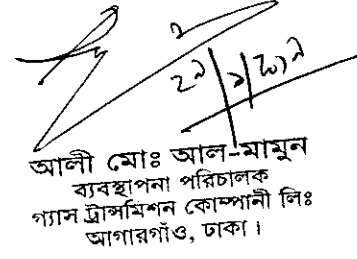 ২৯/৯/২০১৯
আলী মোঃ আল-মামুন
ব্যবস্থাপনা পরিচালক
গ্যাস ট্রান্সমিশন কোম্পানী লিঃ
আগারগাঁও, ঢাকা।